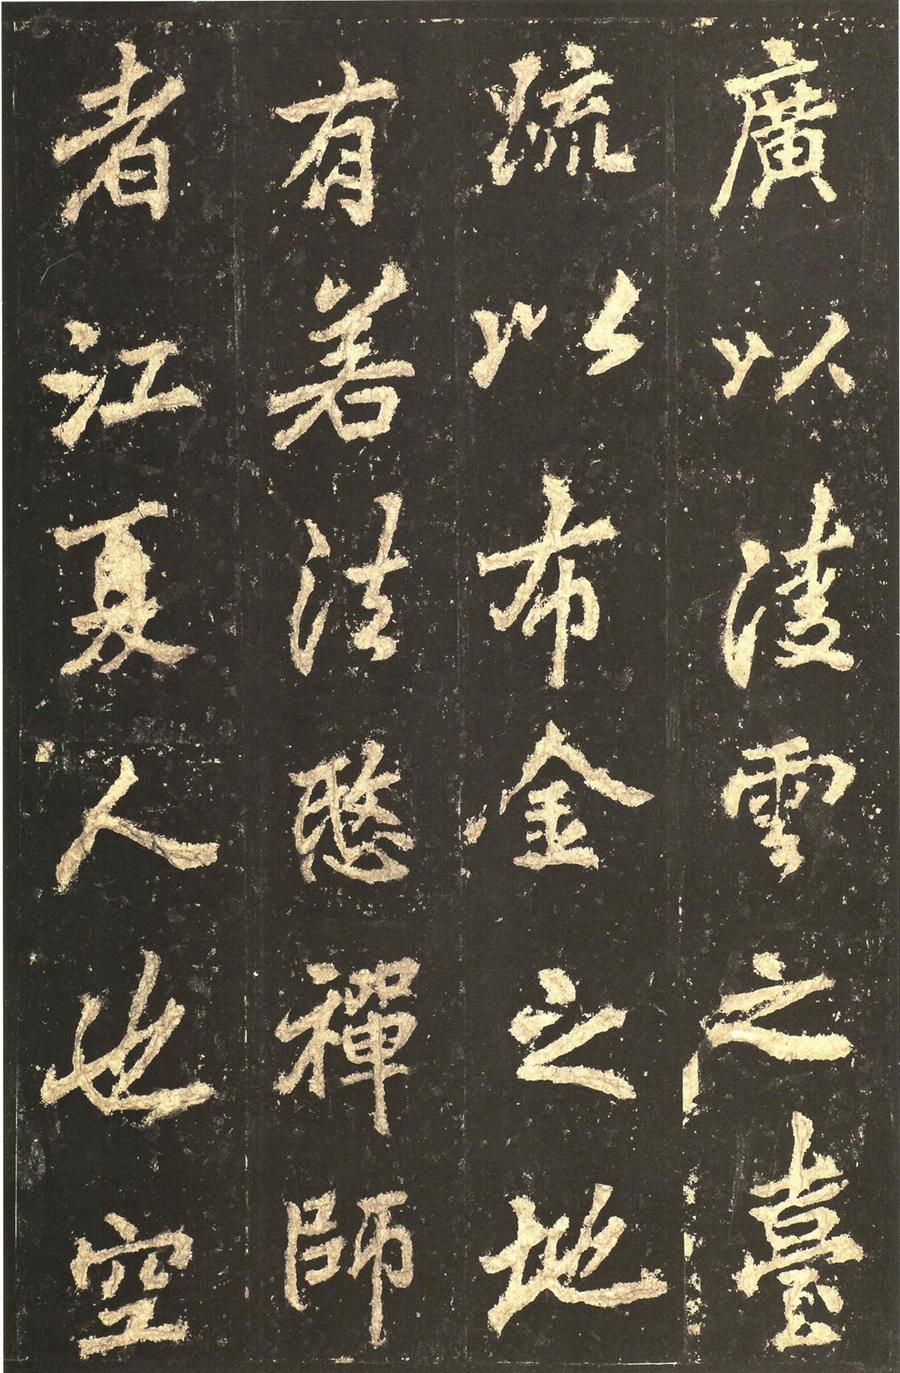 廣以凌雲之臺
疏以布金之地
有若法愍禪師
者江夏人也空